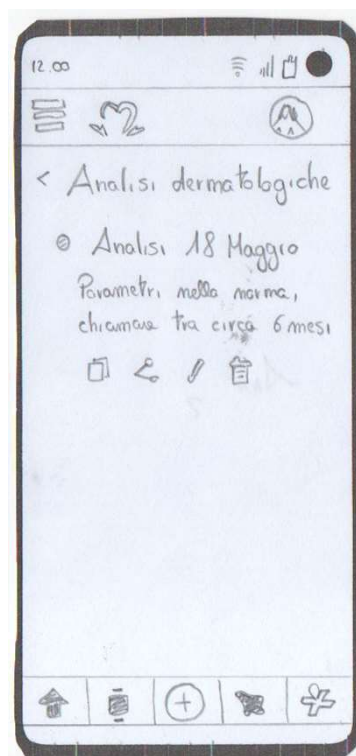 12.00
< Analisi dermatologiche
Analisi 18 Maggio
Parametri nella norma,
chiamare tra circa 6 mesi